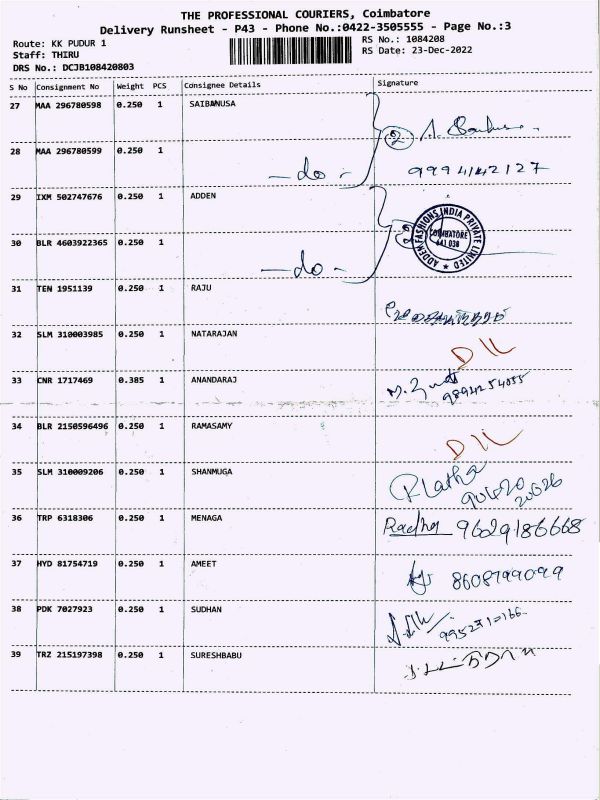 THE PROFESSIONAL COURIERS, Coimbatore
Delivery Runsheet - P43 - Phone No.:0422-3505555 - Page No.:3
Route: KK PUDUR 1
RS No.: 1084208
Staff: THIRU
RS Date: 23-Dec-2022
DRS No.: DCJB108420803
S No Consignment No Weight PCS Consignee Details Signature
27 MAA 296780598 0.250 1 SAIBANUSA
2
28 MAA 296780599 0.250 1
-do- 9994142127
29 IXM 502747676 0.250 1 ADDEN
ADDEM FASHIONS INDIA PRIVATE LIMITED
COIMBATORE
641 038
30 BLR 4603922365 0.250 1
-do-
31 TEN 1951139 0.250 1 RAJU
32 SLM 310003985 0.250 1 NATARAJAN
33 CNR 1717469 0.385 1 ANANDARAJ
9894254055
34 BLR 2150596496 0.250 1 RAMASAMY
35 SLM 310009206 0.250 1 SHANMUGA
Latha
90420
20026
36 TRP 6318306 0.250 1 MENAGA Radha 9629186668
37 HYD 81754719 0.250 1 AMEET 8608799099
38 PDK 7027923 0.250 1 SUDHAN
39 TRZ 215197398 0.250 1 SURESHBABU